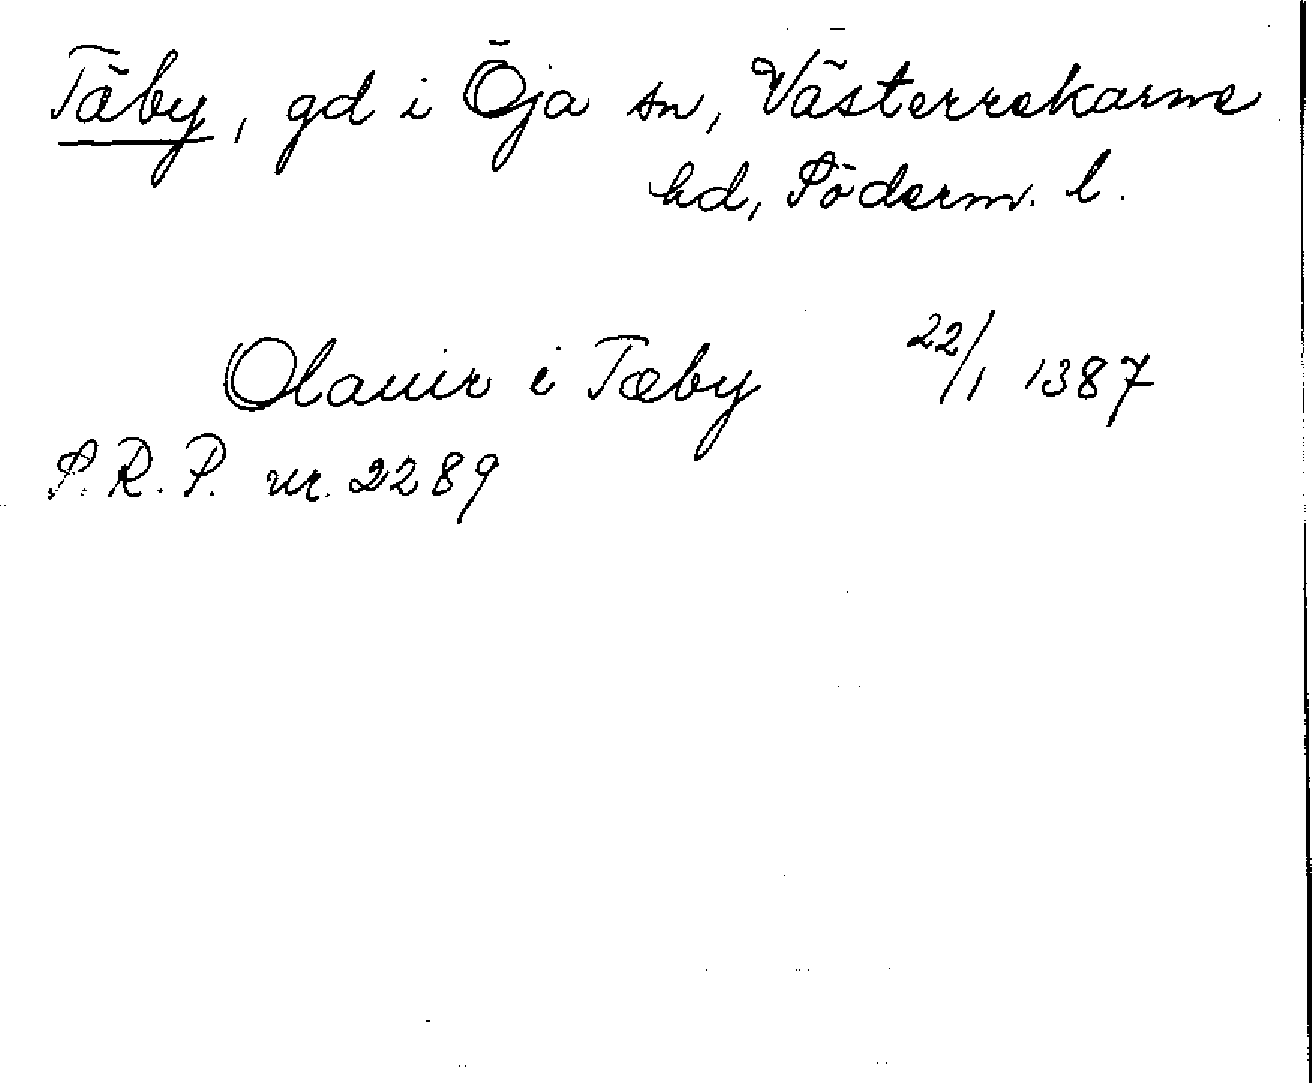 Täby, gd i Öja sn, Västerrekarne
hd, Söderm. l.
Olauir i Tæby 22/1 1387
S.R.P. nr. 2289